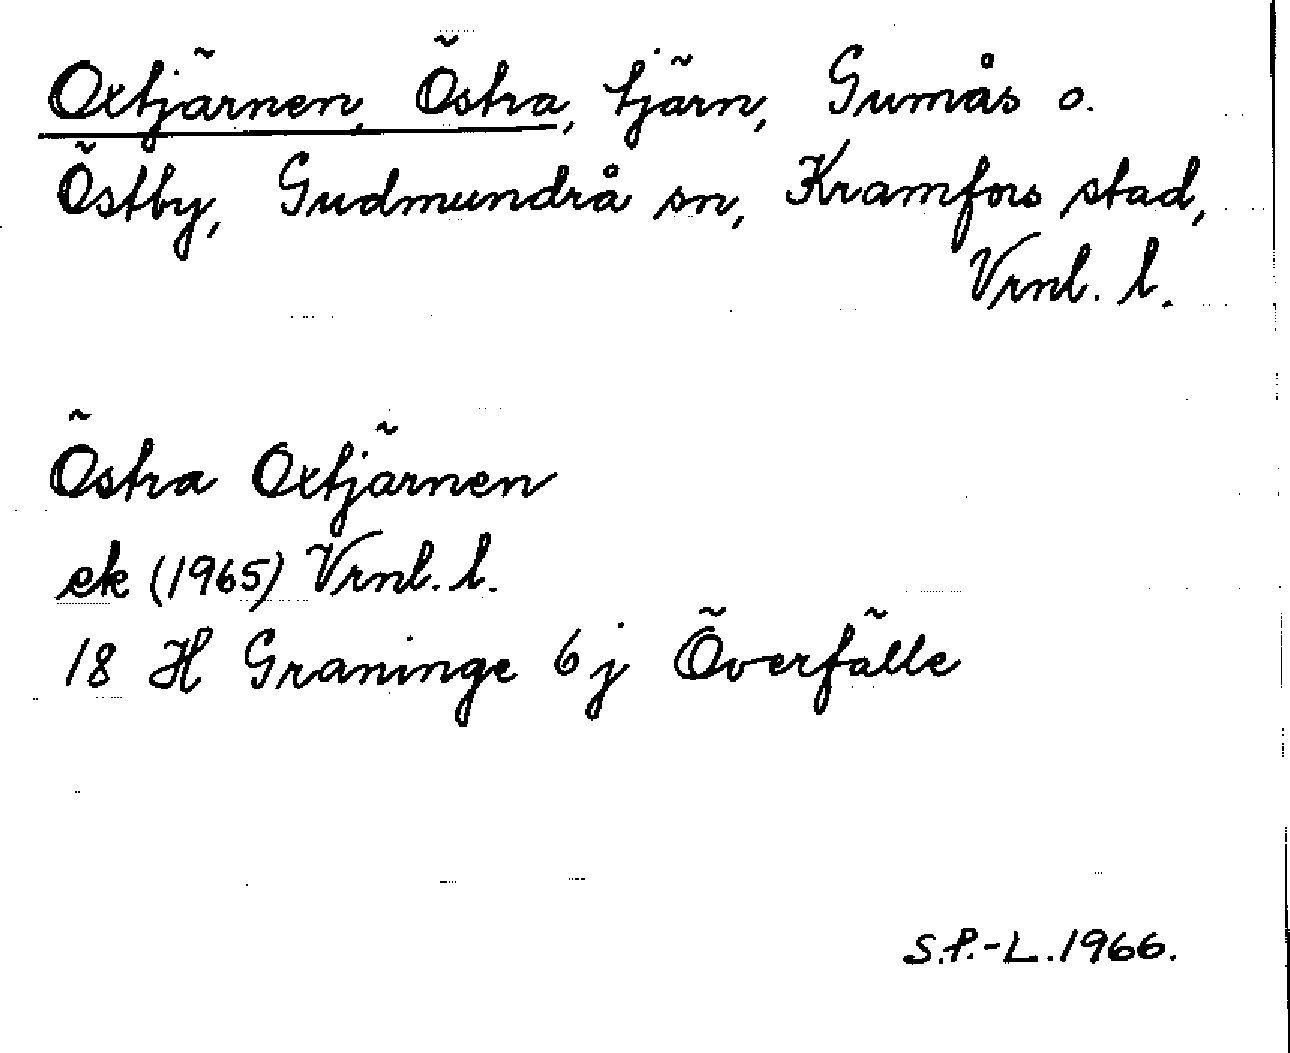 Oxtjärnen, Östra, tjärn, Gumås o.
Östby, Gudmundrå sn, Kramfors stad,
Vrnl. l.
Östra Oxtjärnen
ek (1965) Vrnl. l.
18 H Graninge 6 j Överfälle
S.P.-L. 1966.